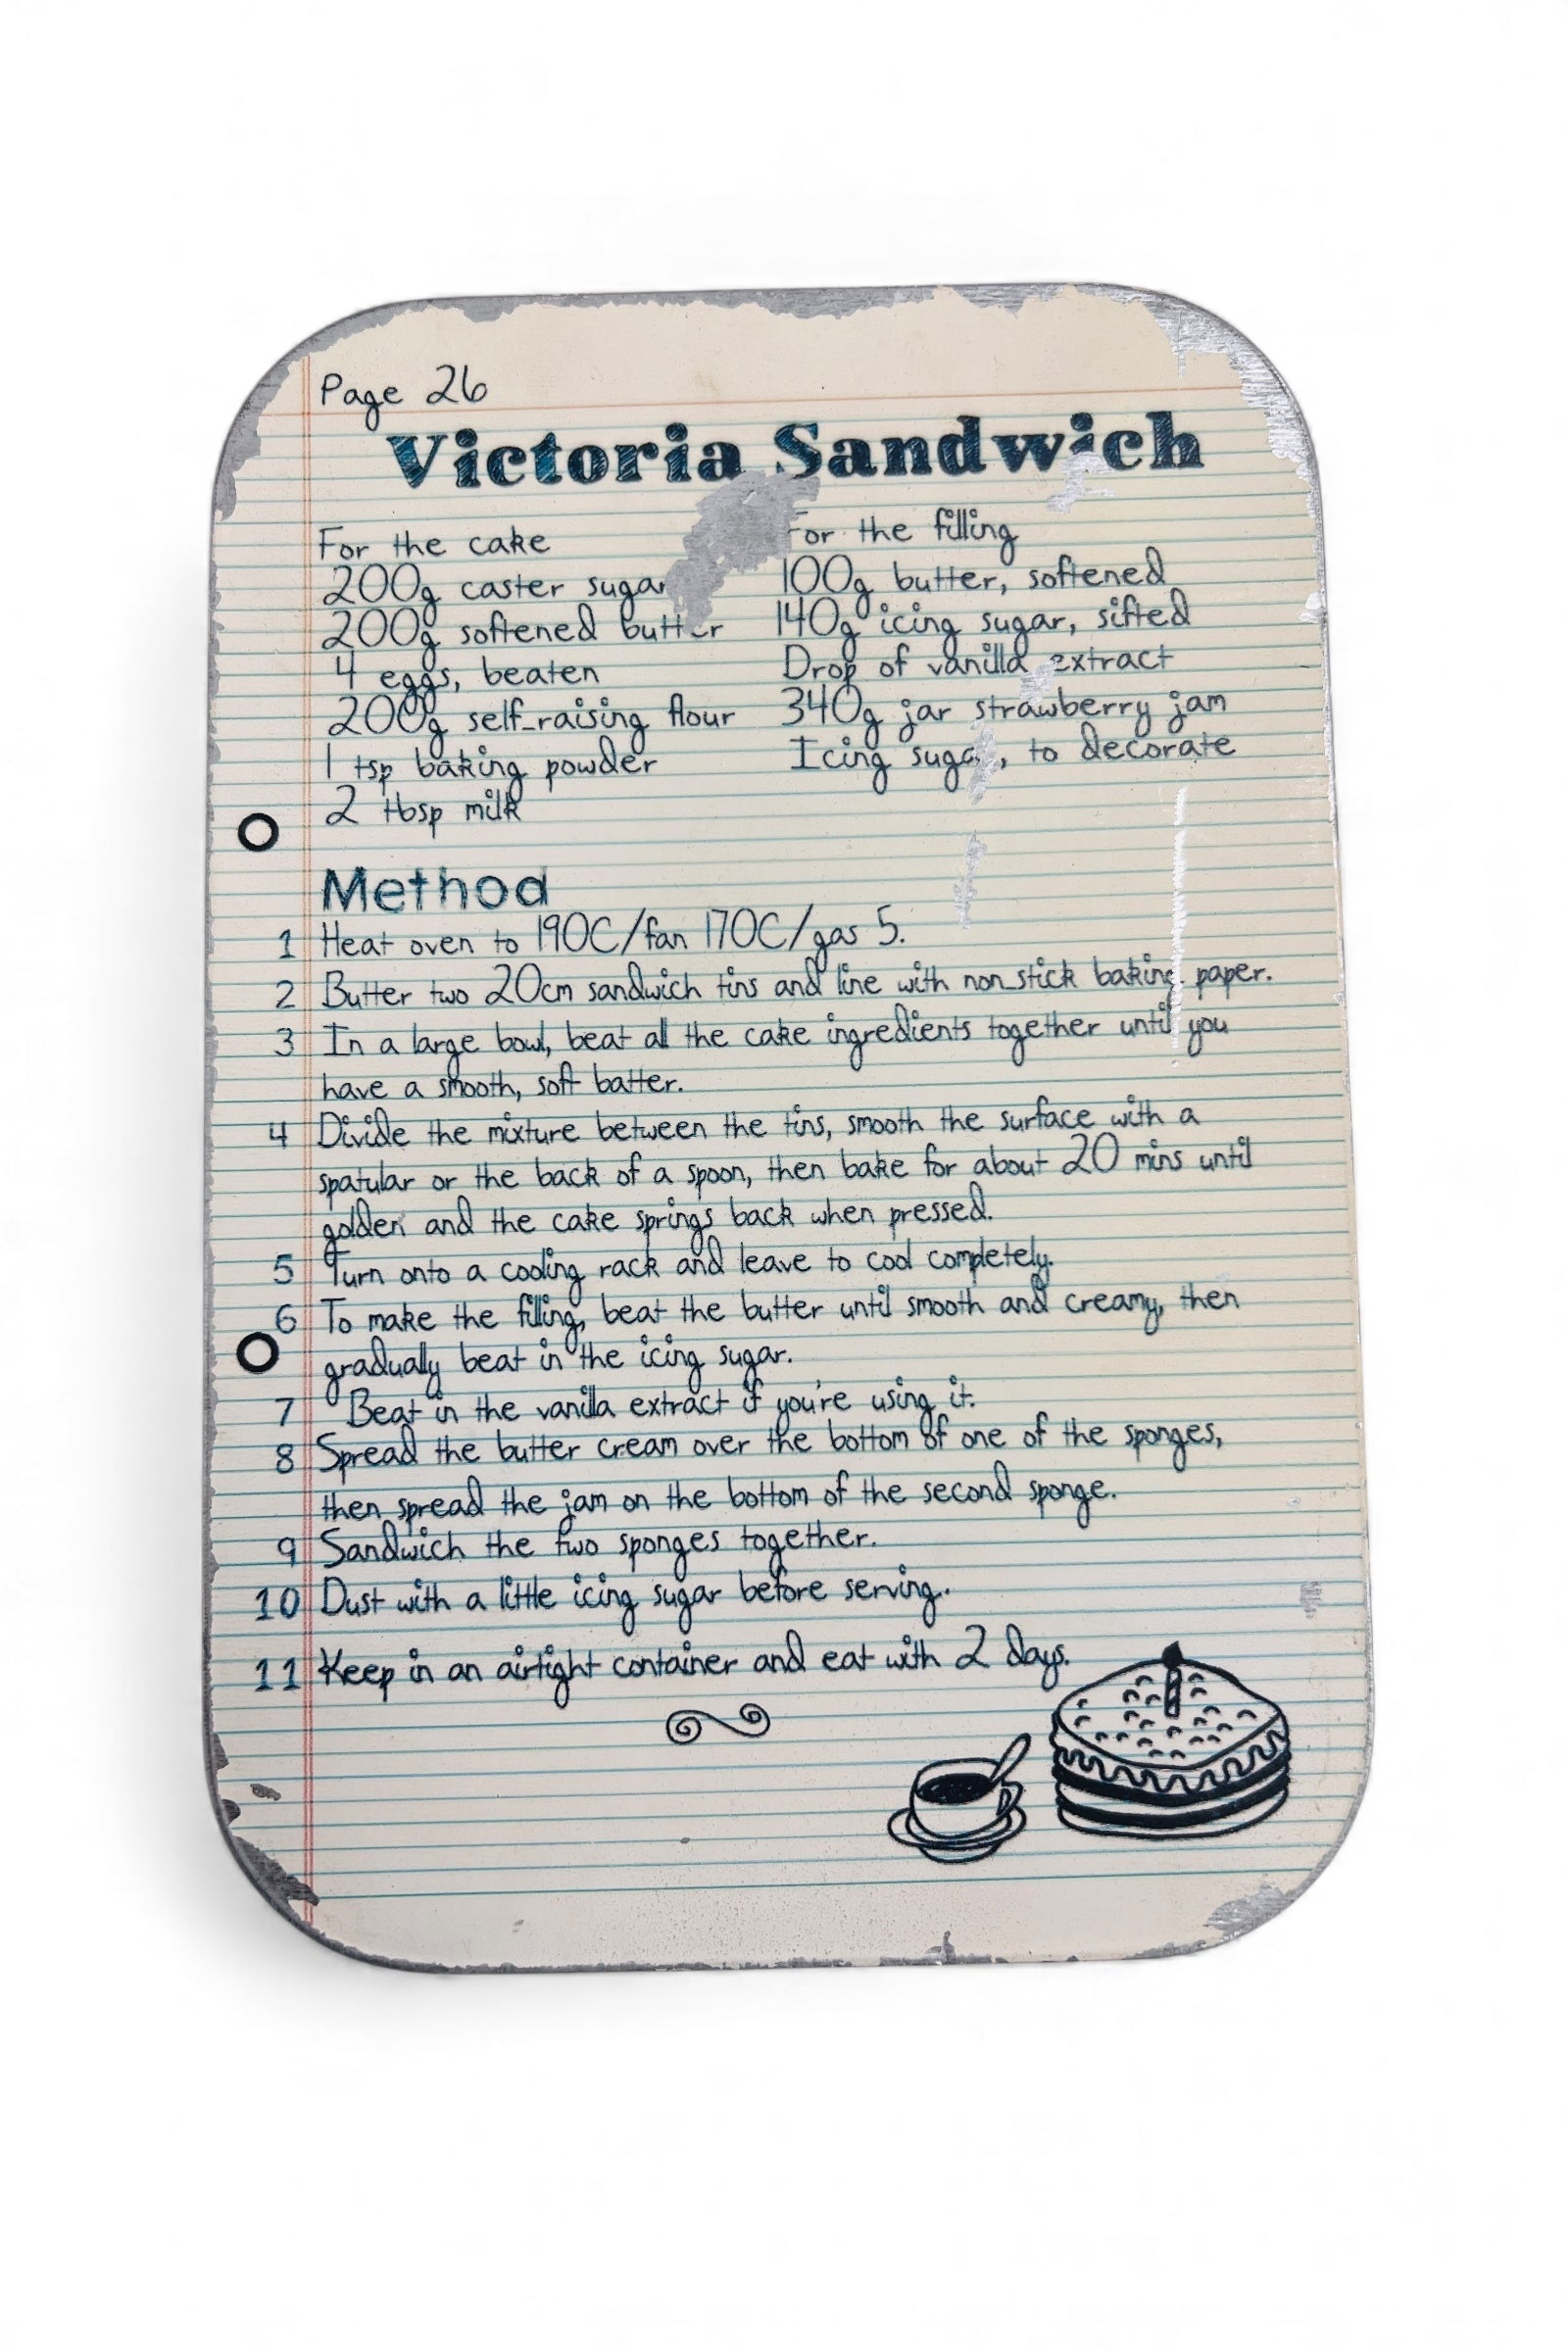 Page 26
Victoria Sandwich
For the cake
200g caster sugar
200g softened butter
4 eggs, beaten
200g self-raising flour
1 tsp baking powder
2 tbsp milk
For the filling
100g butter, softened
140g icing sugar, sifted
Drop of vanilla extract
340g jar strawberry jam
Icing sugar, to decorate
Method
1 Heat oven to 190C/fan 170C/gas 5.
2 Butter two 20cm sandwich tins and line with non-stick baking paper.
3 In a large bowl, beat all the cake ingredients together until you
have a smooth, soft batter.
4 Divide the mixture between the tins, smooth the surface with a
spatular or the back of a spoon, then bake for about 20 mins until
golden and the cake springs back when pressed.
5 Turn onto a cooling rack and leave to cool completely.
6 To make the filling, beat the butter until smooth and creamy, then
gradually beat in the icing sugar.
7 Beat in the vanilla extract if you're using it.
8 Spread the butter cream over the bottom of one of the sponges,
then spread the jam on the bottom of the second sponge.
9 Sandwich the two sponges together.
10 Dust with a little icing sugar before serving.
11 Keep in an airtight container and eat with 2 days.